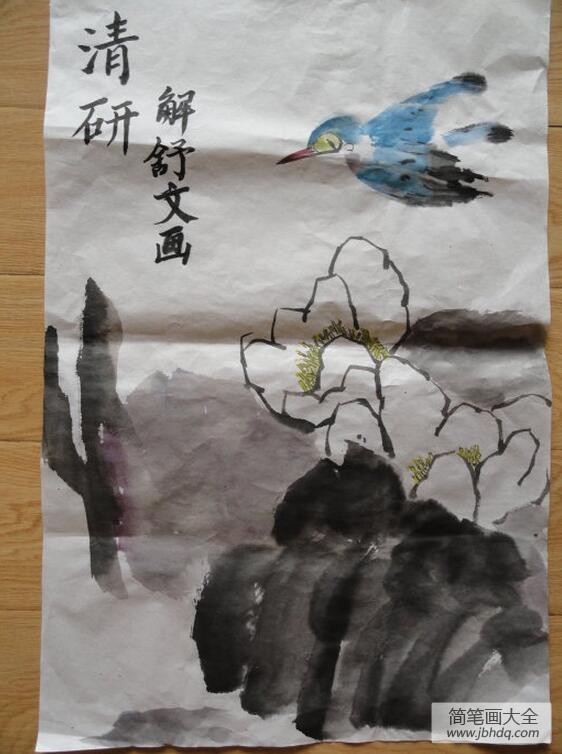 清研
解舒文画
简笔画大全
www.jbhdq.com